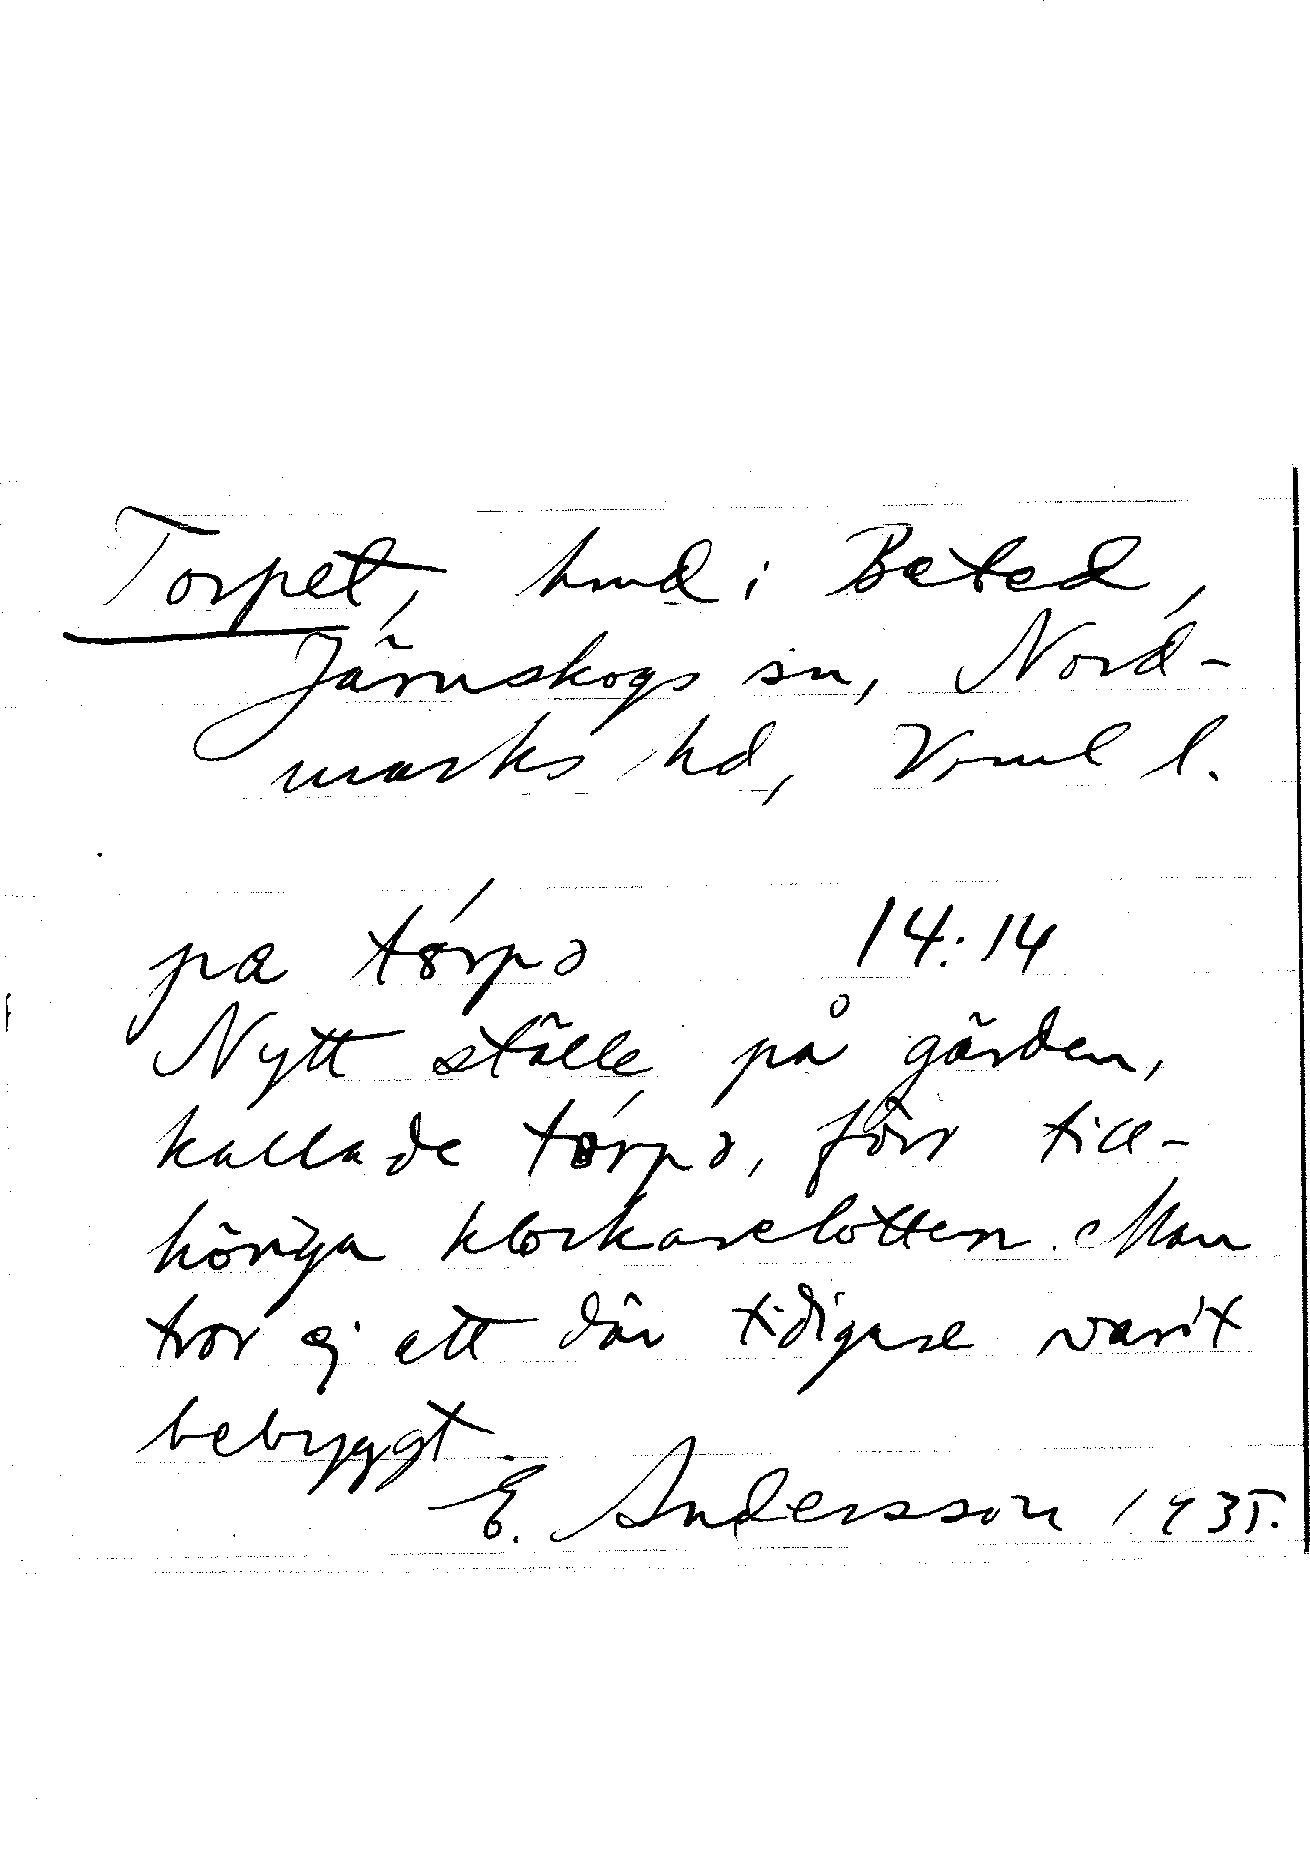 Torpet, hmd i Beted,
Järnskogs sn, Nord-
marks hd, Vrml l.
pa tǿrpə 14:14
Nytt ställe på gärden,
kallade tǿrpə, förr till-
höriga klockarelotten. Man
tror ej att där tidigare varit
bebyggt.
E. Andersson 1935.